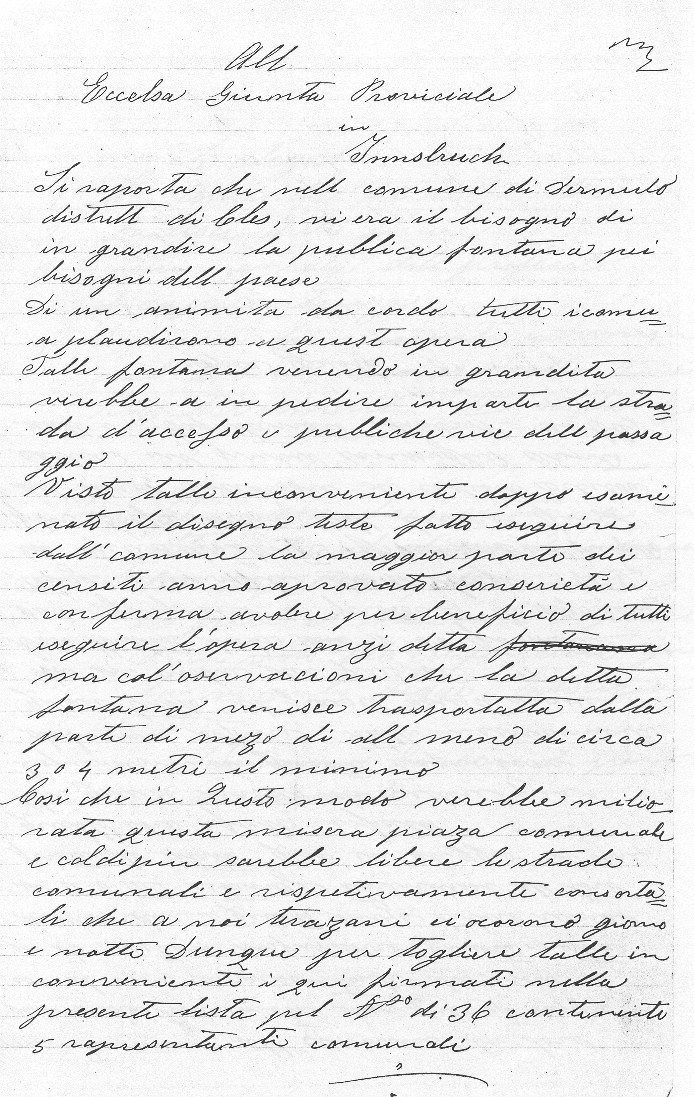 All
Eccelsa Giunta Proviciale
in
Innsbruck
Si raporta che nell comune di Dermulo
distrett di Cles, vi era il bisogno di
in grandire la publica fontana pei
bisogni dell paese
Di un animita da cordo tutti i comu=
a plaudirono a quest opera
Talle fontana venendo in grandita
virebbe a in pedire imparte la stra=
da d'accesso e publiche vie dell passa
ggio
Visto talle inconveniente doppo esami=
nato il disegno teste fatto eseguire
dall' comune la maggior parte dei
censiti anno aprovato conserietà e
conferma avolere per beneficio di tutti
eseguire l'opera anzi detta fontana
ma col'oservacioni che la detta
fontana venisce trasportatta dalla
parte di mezo di all meno di circa
3 o 4 metri il minimo
Cosi che in Questo modo verebbe milio=
rata questa misera piaza comunale
e coldipiu sarebbe libere le strade
comunali e rispetivamente consorta=
li che a noi terazani ci ocorono giorno
e notte Dunque per togliere talle in
conveniente i qui firmati nella
presente lista pel No di 36 contenente
5 rapresentanti comunali